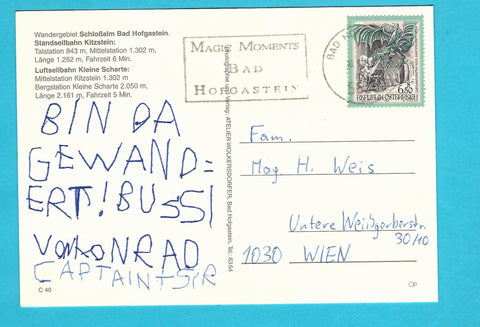 Wandergebiet Schloßalm Bad Hofgastein.
Standseilbahn Kitzstein:
Talstation 843 m, Mittelstation 1.302 m,
Länge 1.252 m, Fahrzeit 6 Min.
Luftseilbahn Kleine Scharte:
Mittelstation Kitzstein 1.302 m
Bergstation Kleine Scharte 2.050 m,
Länge 2.161 m, Fahrzeit 5 Min.
BIN DA
GEWAND=
ERT! BUSSI
VON KONRAD
CAPTAIN SIR
C 40
MAGIC MOMENTS
BAD
HOFGASTEIN
BAD
6.50
REPUBLIK ÖSTERREICH
ATELIER WOLKERSDORFER, Bad Hofgastein, Tel. 63 64
Fam.
Mag. H. Weis
Untere Weißgerberstr.
30/10
1030 WIEN
CP